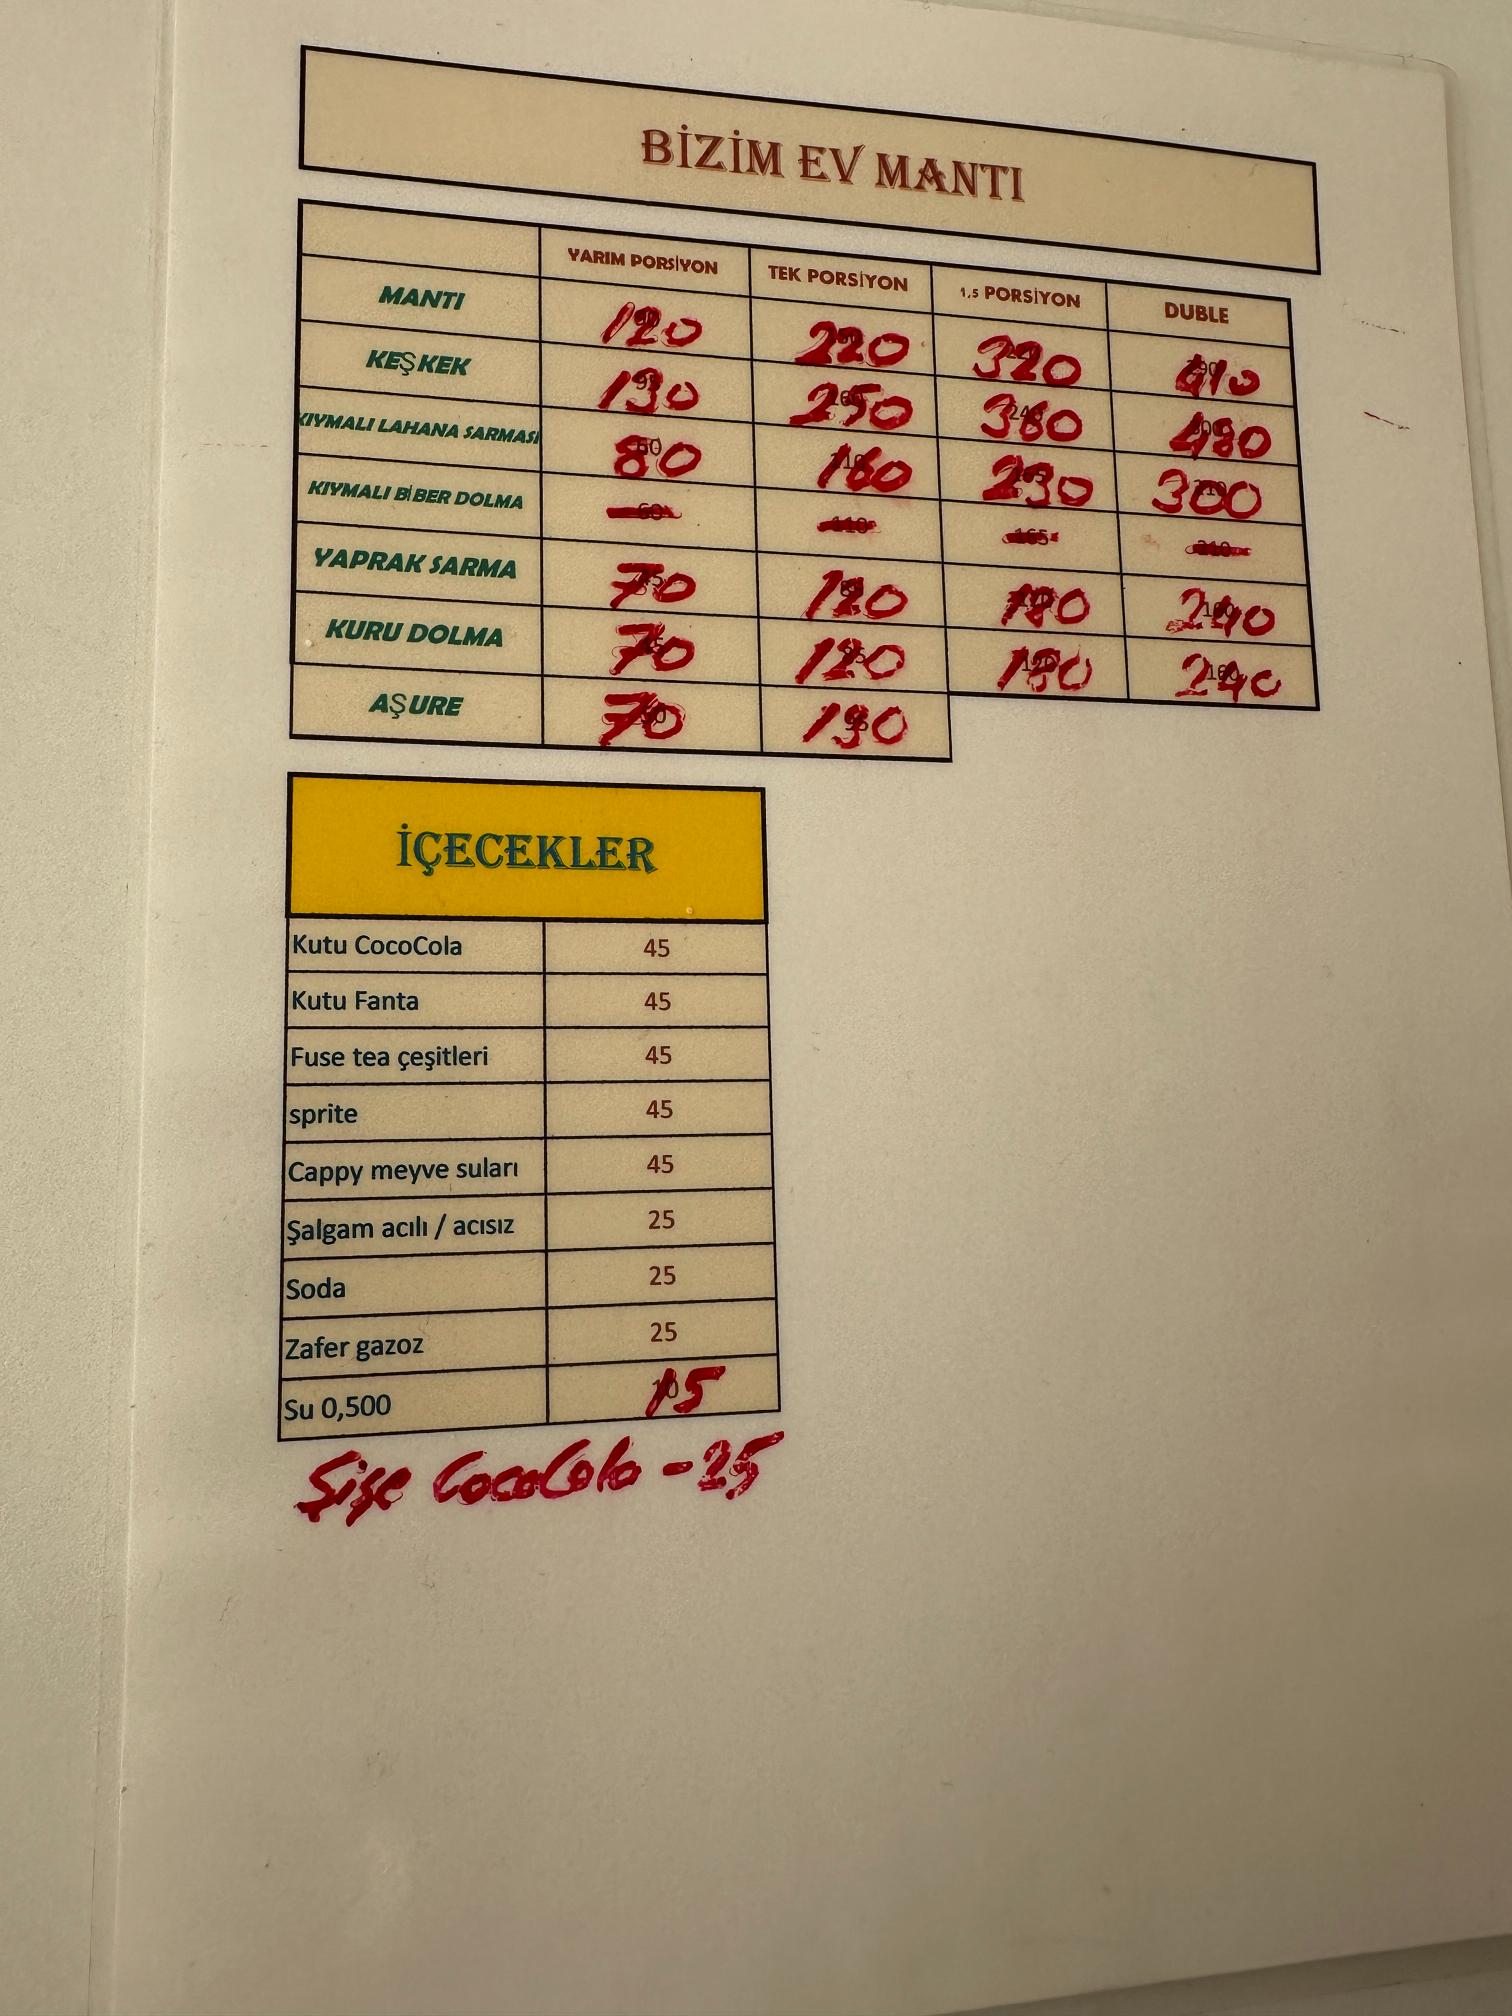 BİZİM EV MANTI
YARIM PORSİYON TEK PORSİYON 1,5 PORSİYON DUBLE
MANTI 120 220 320 410
KEŞKEK 130 250 360 480
KIYMALI LAHANA SARMASI 80 160 230 300
KIYMALI BİBER DOLMA 60 110 165 210
YAPRAK SARMA 70 120 180 240
KURU DOLMA 70 120 180 240
AŞURE 70 130
İÇECEKLER
Kutu CocoCola 45
Kutu Fanta 45
Fuse tea çeşitleri 45
sprite 45
Cappy meyve suları 45
Şalgam acılı / acısız 25
Soda 25
Zafer gazoz 25
Su 0,500 15
Şişe CocaCola - 25